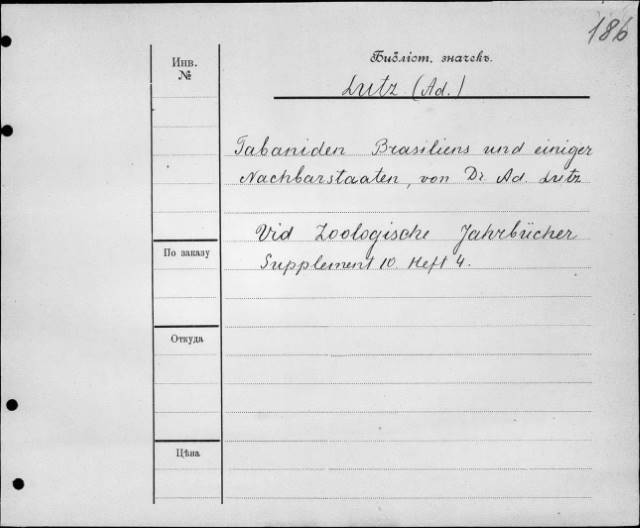 186
Инв.
№
Библіот. значекъ.
Lutz (Ad.)
Tabaniden Brasiliens und einiger
Nachbarstaaten, von Dr. Ad. Lutz
Vid Zoologische Jahrbücher
Supplement 10. Heft 4.
По заказу
Откуда
Цѣна